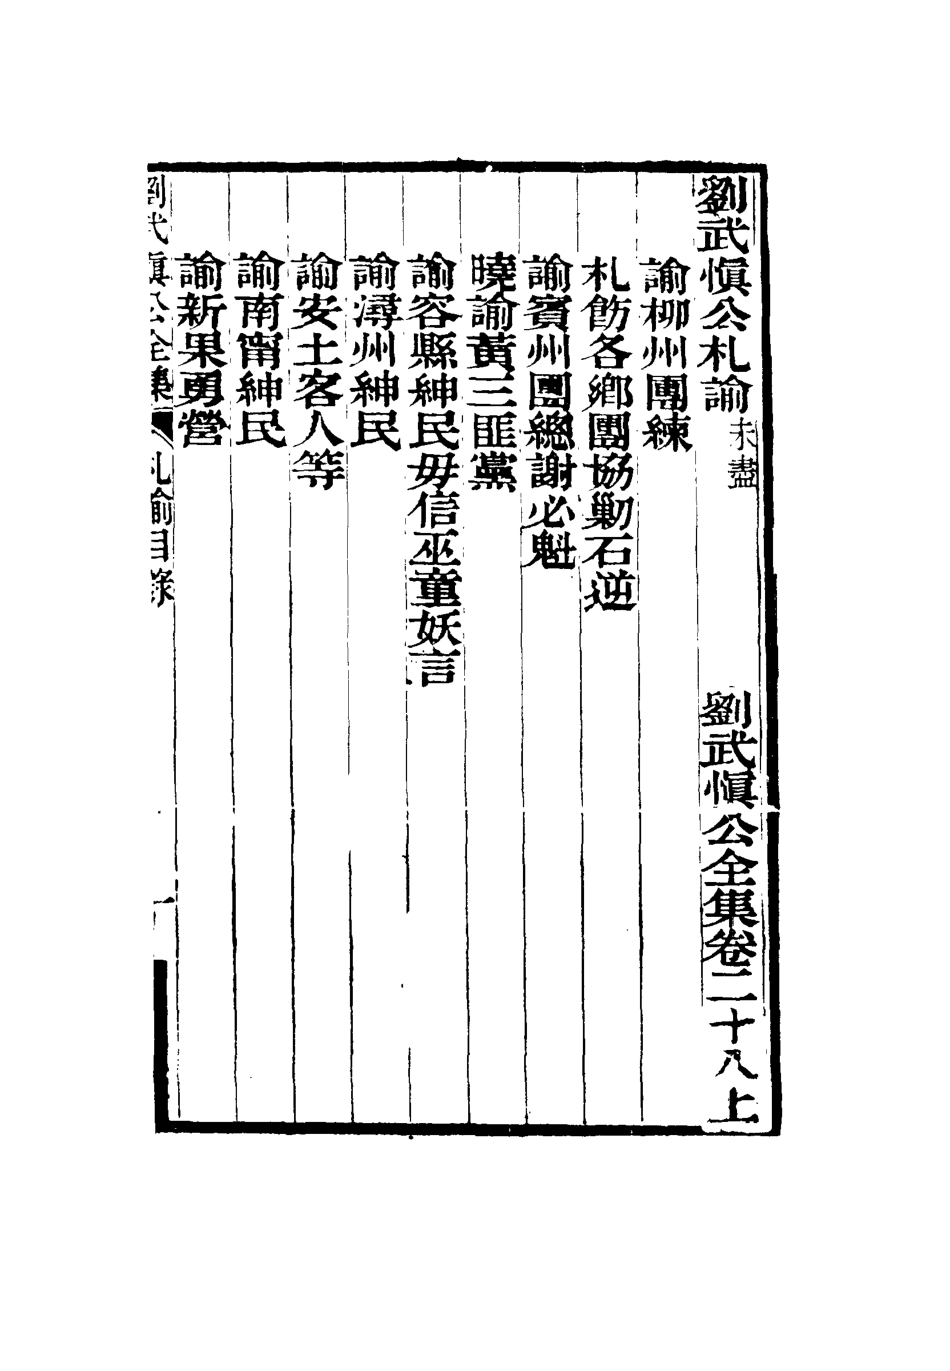 劉武愼公札諭未盡 劉武愼公全集卷二十八上
諭柳州團練
札飭各鄉團協剿石逆
諭賓州團總謝必魁
曉諭黃三匪黨
諭容縣紳民毋信巫童妖言
諭潯州紳民
諭安土客人等
諭南甯紳民
諭新果勇營
劉武愼公全集 札諭目錄 一